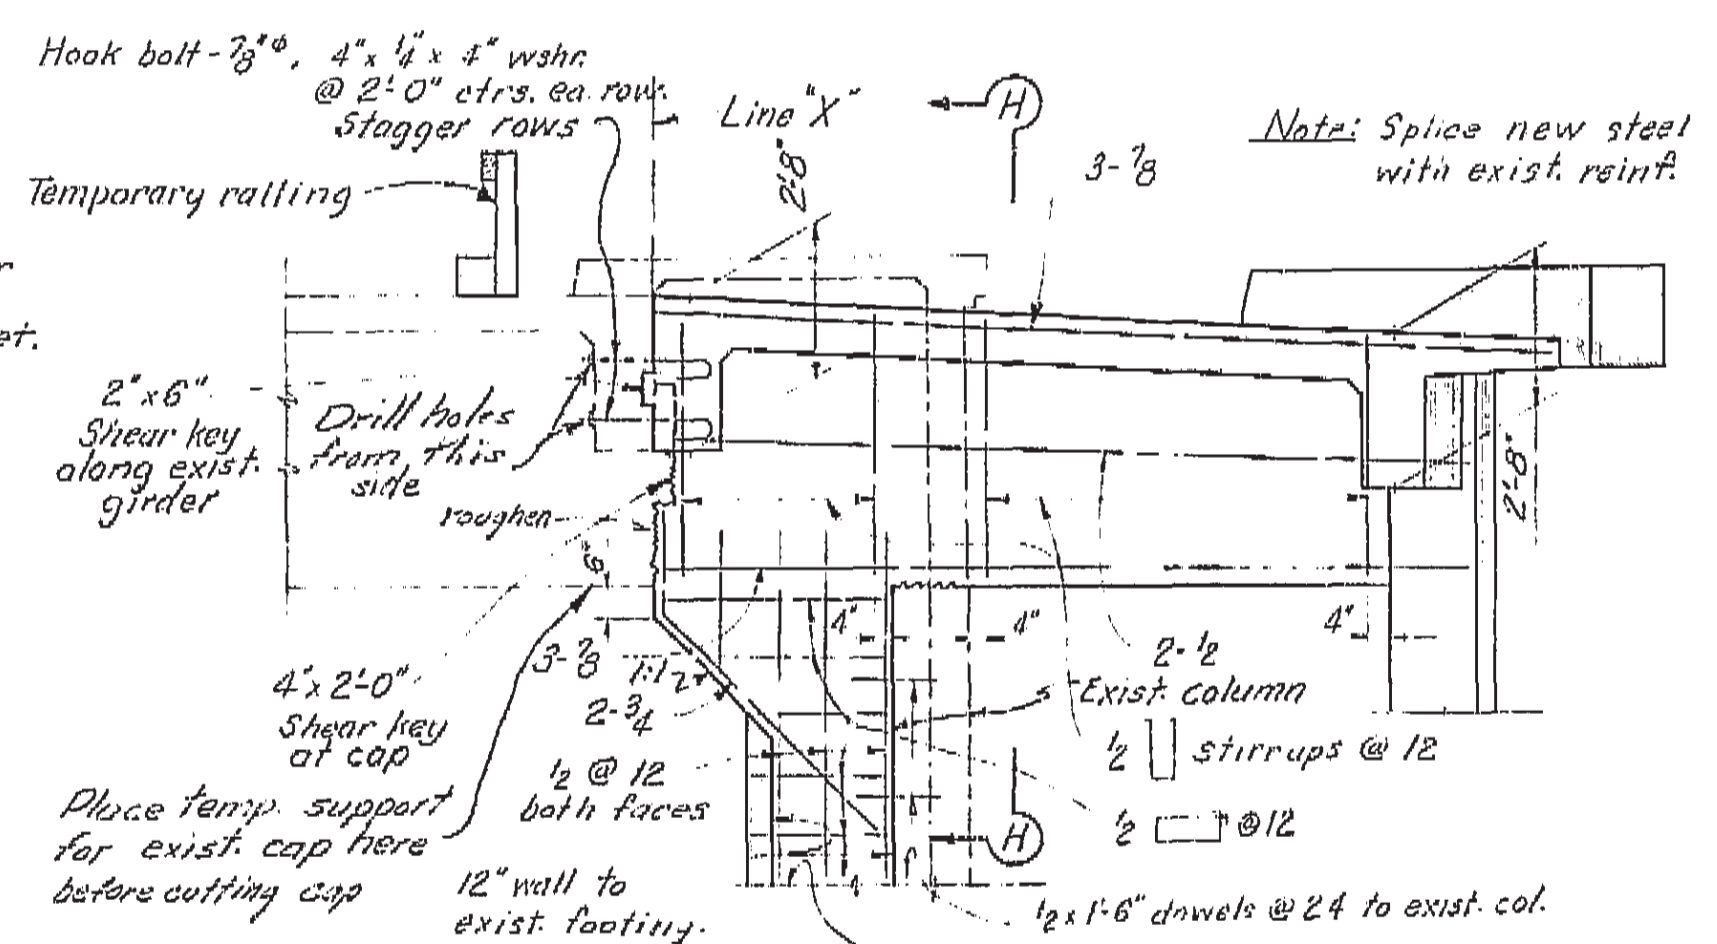 Hook bolt - 7/8"ϕ, 4" x 1/4" x 4" wshr.
@ 2'-0" ctrs. ea. row.
Stagger rows
Line "X"
H
Note: Splice new steel
with exist. reinf.
3-7/8
2'-8"
Temporary railing
2" x 6"
Shear key
along exist.
girder
Drill holes
from this
side
roughen
6"
2'-8"
4" x 2'-0"
Shear key
at cap
3-7/8
1:1
2"
2-3/4
4"
4"
4"
2-1/2
Exist. column
1/2 stirrups @ 12
1/2 @ 12
both faces
1/2 @ 12
H
Place temp. support
for exist. cap here
before cutting cap
12" wall to
exist. footing.
1/2 x 1'-6" dowels @ 24 to exist. col.